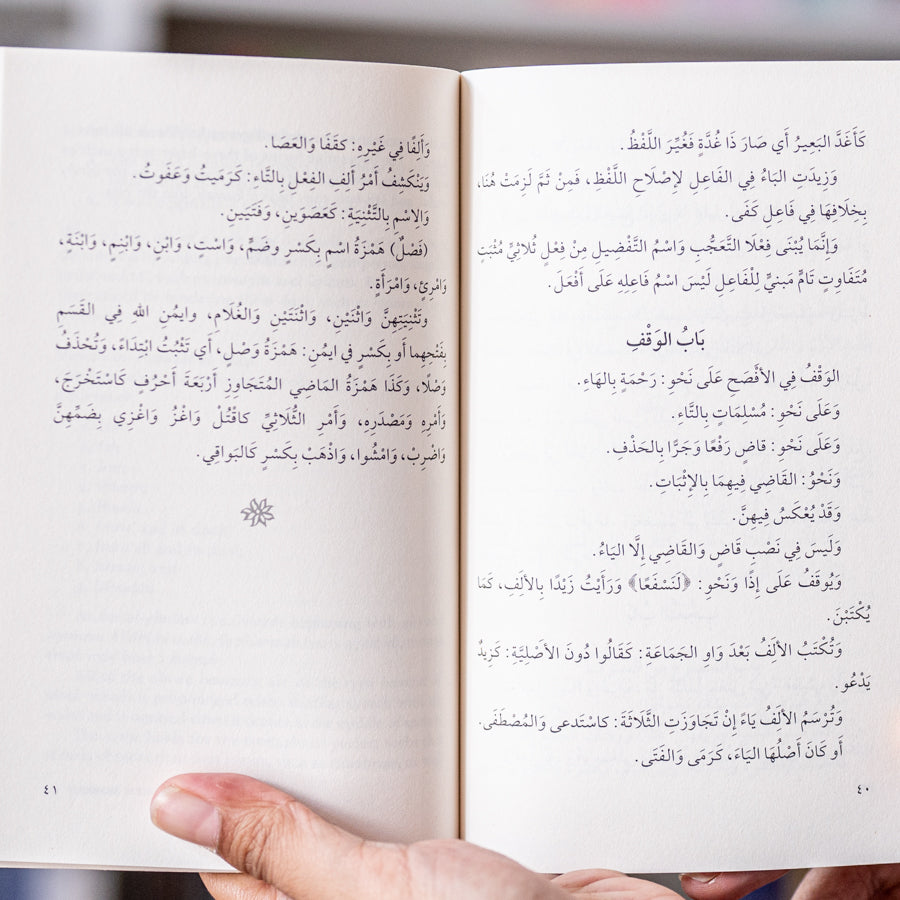 كَأَغَدَّ البَعِيرُ أَي صَارَ ذَا غُدَّةٍ فَغُيِّرَ اللَّفْظُ.
وَزِيدَتِ البَاءُ فِي الفَاعِلِ لإِصْلَاحِ اللَّفْظِ، فَمِنْ ثَمَّ لَزِمَتْ هُنَا،
بِخِلَافِهَا فِي فَاعِلِ كَفَى.
وَإِنَّمَا يُبْنَى فِعْلَا التَّعَجُّبِ وَاسْمُ التَّفْضِيلِ مِنْ فِعْلٍ ثُلَاثِيٍّ مُثْبَتٍ
مُتَفَاوِتٍ تَامٍّ مَبنيٍّ لِلْفَاعِلِ لَيْسَ اسْمُ فَاعِلِهِ عَلَى أَفْعَلَ.
بَابُ الوَقْفِ
الوَقْفُ فِي الأفْصَحِ عَلَى نَحْوِ: رَحْمَةٍ بِالهَاءِ.
وَعَلَى نَحْوِ: مُسْلِمَاتٍ بِالتَّاءِ.
وَعَلَى نَحْوِ: قَاضٍ رَفْعًا وَجَرًّا بِالحَذْفِ.
وَنَحْوُ: القَاضِي فِيهِمَا بِالإِثْبَاتِ.
وَقَدْ يُعْكَسُ فِيهِنَّ.
وَلَيسَ فِي نَصْبِ قَاضٍ وَالقَاضِي إِلَّا اليَاءُ.
وَيُوقَفُ عَلَى إِذًا وَنَحْوِ: ﴿لَنَسْفَعًا﴾ وَرَأَيْتُ زَيْدًا بِالألِفِ، كَمَا
يُكْتَبْنَ.
وَتُكْتَبُ الألِفُ بَعْدَ وَاوِ الجَمَاعَةِ: كَقَالُوا دُونَ الأصْلِيَّةِ: كَزِيدٌ
يَدْعُو.
وَتُرْسَمُ الألِفُ يَاءً إِنْ تَجَاوَزَتِ الثَّلَاثَةَ: كاسْتَدعى وَالمُصْطَفَى.
أَو كَانَ أَصْلُهَا اليَاءَ، كَرَمَى وَالفَتَى.
٤٠
وَأَلِفًا فِي غَيْرِهِ: كَقَفَا وَالعَصَا.
وَيَنْكَشِفُ أَمْرُ أَلِفِ الفِعْلِ بِالتَّاءِ: كَرَمَيتُ وَعَفَوتُ.
وَالِاسْمِ بِالتَّثْنِيَةِ: كَعَصَوَينِ، وَفَتَيَينِ.
(فَصْلٌ) هَمْزَةُ اسْمٍ بِكَسْرٍ وضَمٍّ، وَاسْتٍ، وَابْنٍ، وَابْنِمٍ، وَابْنَةٍ،
وَامْرِئٍ، وَامْرَأَةٍ.
وَتَثْنِيَتِهِنَّ وَاثْنَيْنِ، وَاثْنَتَيْنِ وَالغُلَامِ، وايمُنِ اللهِ فِي القَسَمِ
بِفَتْحِهِما أَو بِكَسْرٍ في ايمُنِ: هَمْزَةُ وَصْلٍ، أَي تَثْبُتُ ابْتِدَاءً، وَتُحْذَفُ
وَصْلًا، وَكَذَا هَمْزَةُ المَاضِي المُتَجَاوِزِ أَرْبَعَةَ أَحْرُفٍ كَاسْتَخْرَجَ،
وَأَمْرِهِ وَمَصْدَرِهِ، وَأَمْرِ الثُّلَاثِيِّ كاقْتُلْ وَاغْزُ وَاغْزِي بِضَمِّهِنَّ
وَاضْرِبْ، وَامْشُوا، وَاذْهَبْ بِكَسْرٍ كَالبَوَاقِي.
٤١